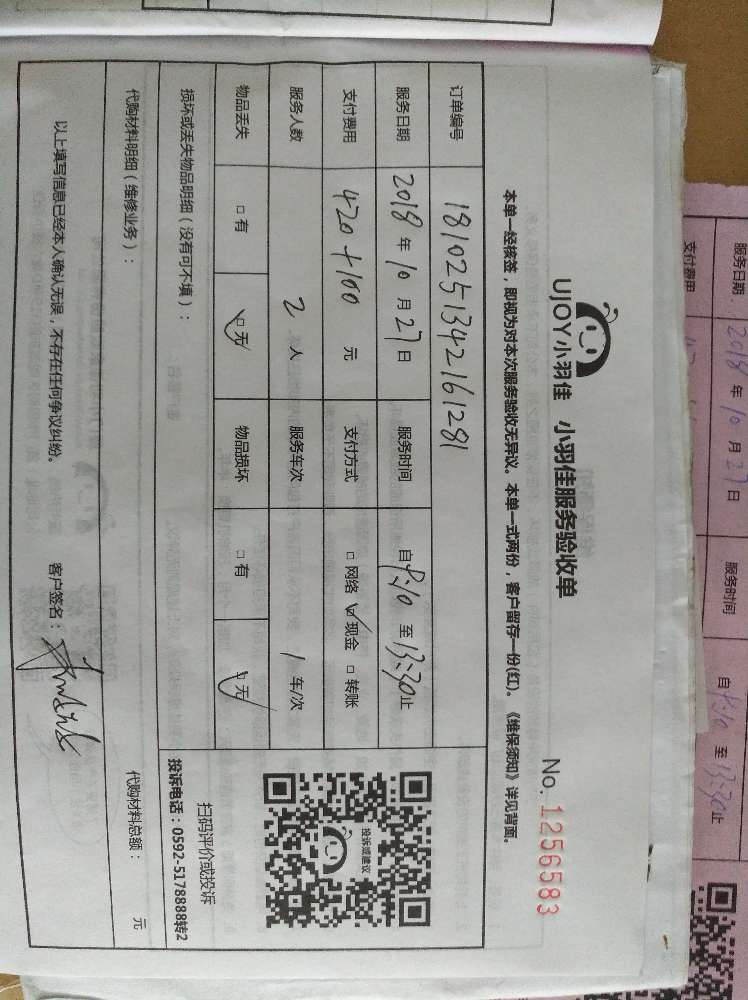 UJOY小羽佳 小羽佳服务验收单
No. 1256583
本单一经核签，即视为对本次服务验收无异议。本单一式两份，客户留存一份(红)。《维保须知》详见背面。
订单编号 1810251342161281
服务日期 2018 年 10 月 27 日 服务时间 自 8:10 至 13:30 止
支付费用 420+100 元 支付方式 □ 网络 ☑ 现金 □ 转账
服务人数 2 人 服务车次 1 车/次
物品丢失 □ 有 ☑ 无 物品损坏 □ 有 ☑ 无
损坏或丢失物品明细（没有可不填）：
投诉或建议
扫码评价或投诉
投诉电话：0592-5178888转2
代购材料明细（维修业务）： 代购材料总额： 元
以上填写信息已经本人确认无误，不存在任何争议纠纷。 客户签名：
服务日期： 2018 年 10 月 27 日 服务时间 自 8:10 至 13:30 止
支付费用